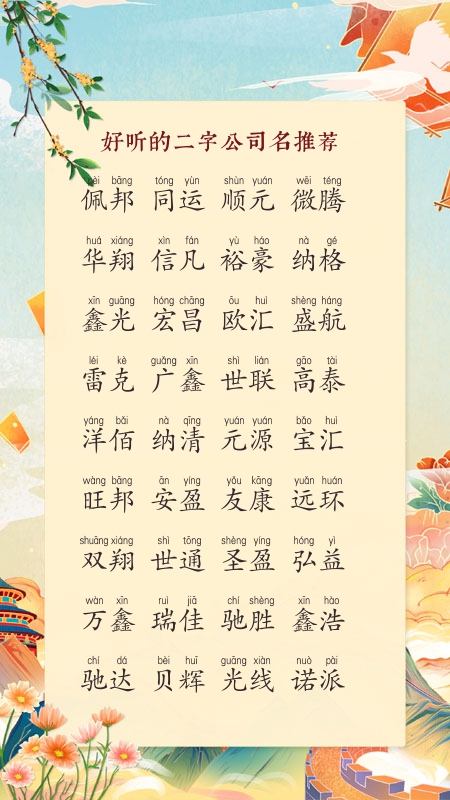 好听的二字公司名推荐
pèi bāng tóng yùn shùn yuán wēi téng
佩邦 同运 顺元 微腾
huá xiáng xìn fán yù háo nà gé
华翔 信凡 裕豪 纳格
xīn guāng hóng chāng ōu huì shèng háng
鑫光 宏昌 欧汇 盛航
léi kè guǎng xīn shì lián gāo tài
雷克 广鑫 世联 高泰
yáng bǎi nà qīng yuán yuán bǎo huì
洋佰 纳清 元源 宝汇
wàng bāng ān yíng yǒu kāng yuǎn huán
旺邦 安盈 友康 远环
shuāng xiáng shì tōng shèng yíng hóng yì
双翔 世通 圣盈 弘益
wàn xīn ruì jiā chí shèng xīn hào
万鑫 瑞佳 驰胜 鑫浩
chí dá bèi huī guāng xiàn nuò pài
驰达 贝辉 光线 诺派